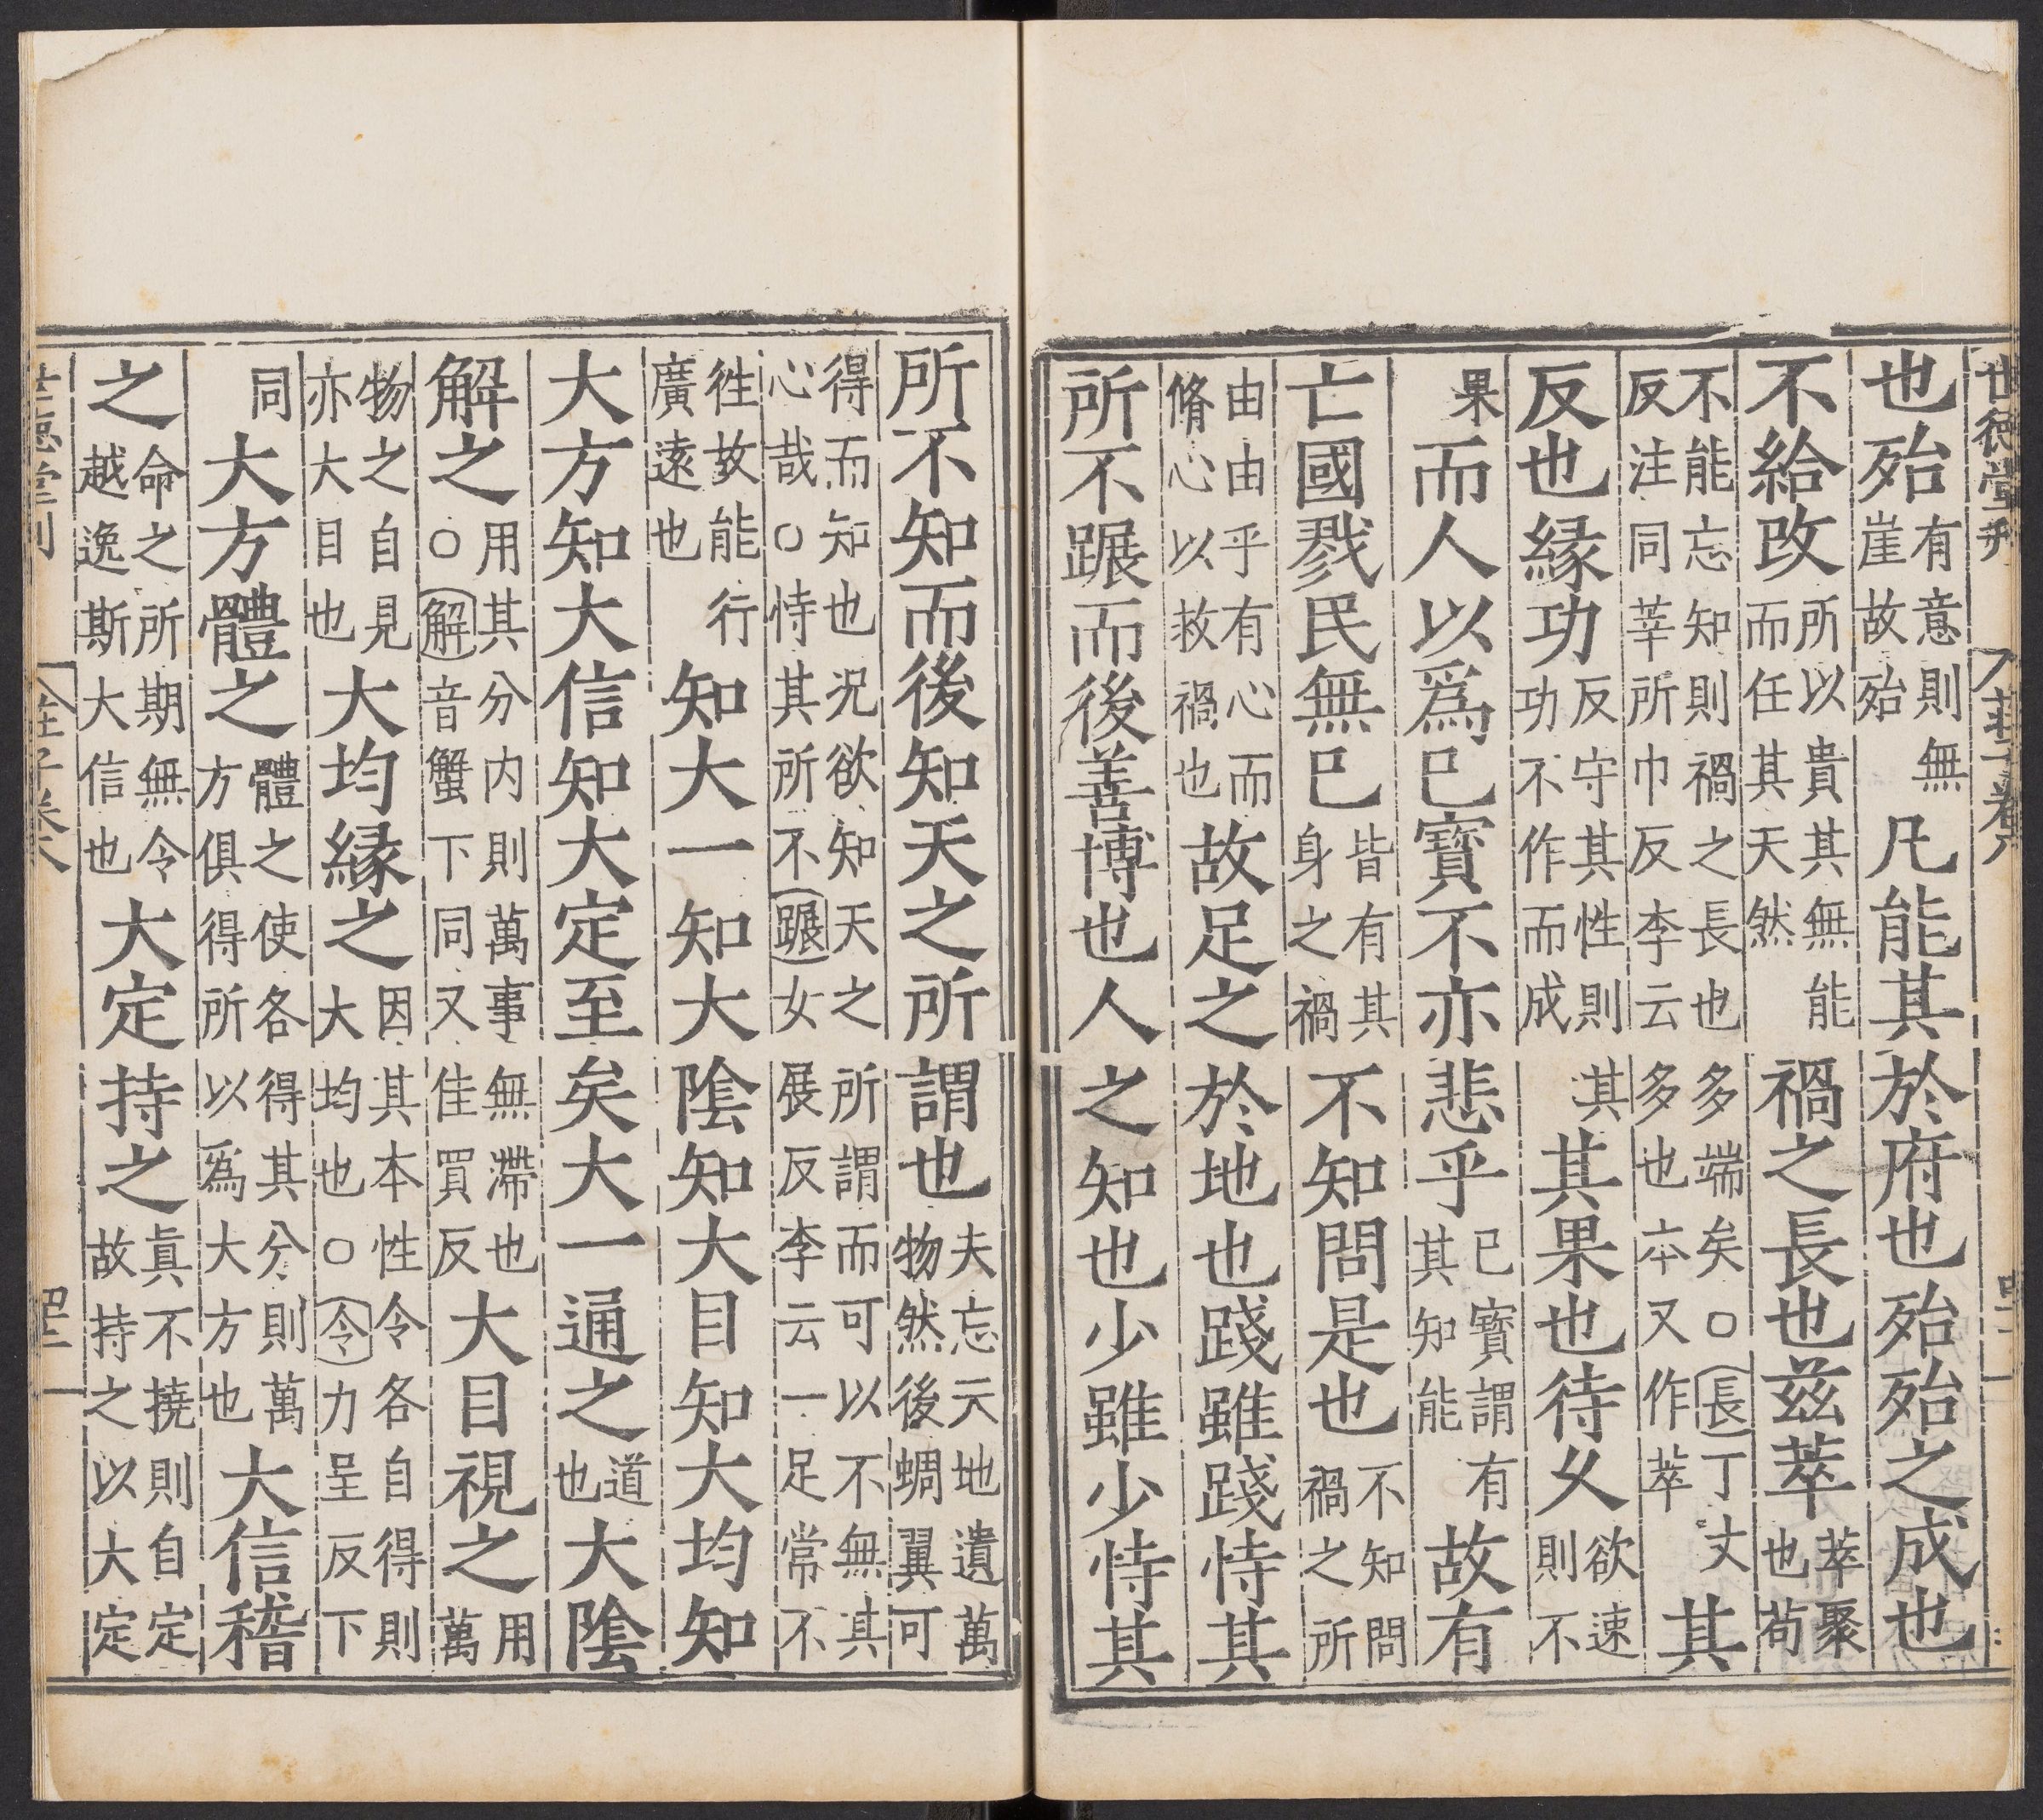 世德堂刊 莊子卷八 四十一
也殆有意則無崖故殆凡能其於府也殆殆之成也
不給改所以貴其無能而任其天然禍之長也茲萃萃聚也苟
不能忘知則禍之長也多端矣○長丁丈反注同莘所巾反李云多也本又作萃其
反也緣功反守其性則其功不作而成其果也待久欲速則不
果而人以爲已寶不亦悲乎已寶謂有其知能故有
亡國戮民無已皆有其身之禍不知問是也不知問禍之所
由由乎有心而脩心以救禍也故足之於地也踐雖踐恃其
所不蹍而後善博也人之知也少雖少恃其
所不知而後知天之所謂也夫忘元地遺萬物然後蜩翼可
得而知也況欲知天之所謂而可以不無其心哉○恃其所不蹍女展反李云一足常不
徃故能行廣遠也知大一知大陰知大目知大均知
大方知大信知大定至矣大一通之道也大陰
解之用其分内則萬事無滯也○解音蟹下同又佳買反大目視之用萬
物之自見亦大目也大均緣之因其本性令各自得則大均也○令力呈反下
同大方體之體之使各得其分則萬方俱得所以爲大方也大信稽
之命之所期無令越逸斯大信也大定持之眞不撓則自定故持之以大定
世德堂刊 莊子卷八 四十一